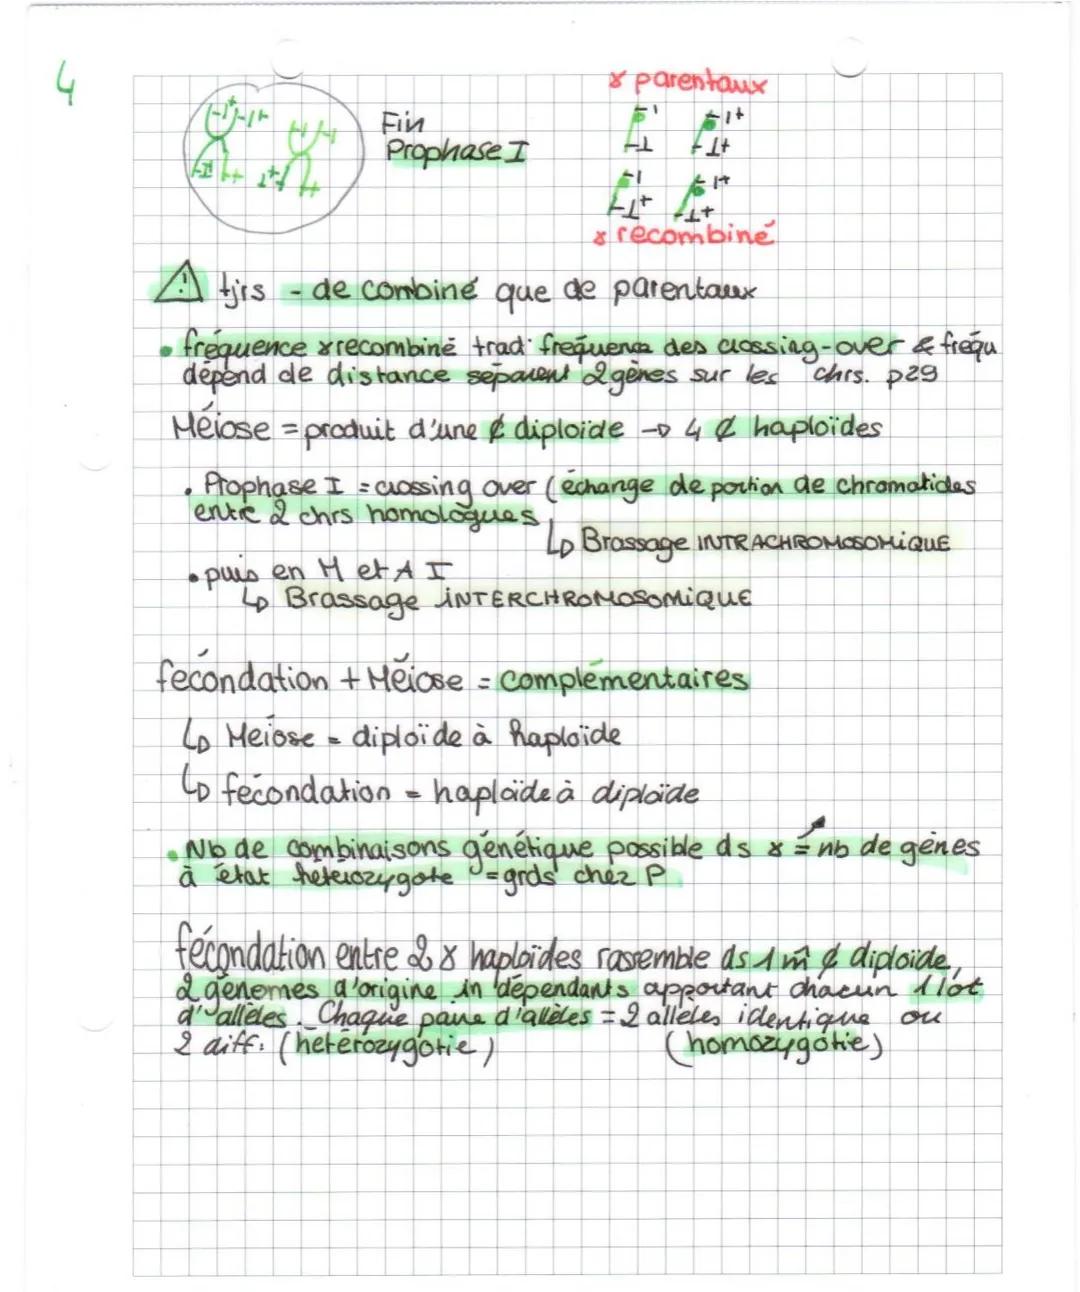 4
Fin
Prophase I
ɣ parentaux
ɣ recombiné
⚠ tjrs - de combiné que de parentaux
• fréquence ɣ recombiné trad. fréquence des crossing-over & fréqu
dépend de distance séparent 2 gènes sur les chrs. p29
Méiose = produit d'une ¢ diploïde → 4 ¢ haploïdes
• Prophase I = crossing over (échange de portion de chromatides
entre 2 chrs homologues
↳ Brassage INTRACHROMOSOMIQUE
• puis en M et A I
↳ Brassage INTERCHROMOSOMIQUE
fécondation + Méiose = complémentaires
↳ Meiose = diploïde à haploïde
↳ fécondation = haploïde à diploïde
• Nb de combinaisons génétique possible ds ɣ = nb de gènes
à état hétérozygote = grds chez P
fécondation entre 2 ɣ haploïdes rassemble ds 1 m̂ ¢ diploïde,
2 génomes d'origine indépendants apportant chacun 1 lot
d'allèles. Chaque paire d'allèles = 2 allèles identique ou
2 diff. (hétérozygotie) (homozygotie)